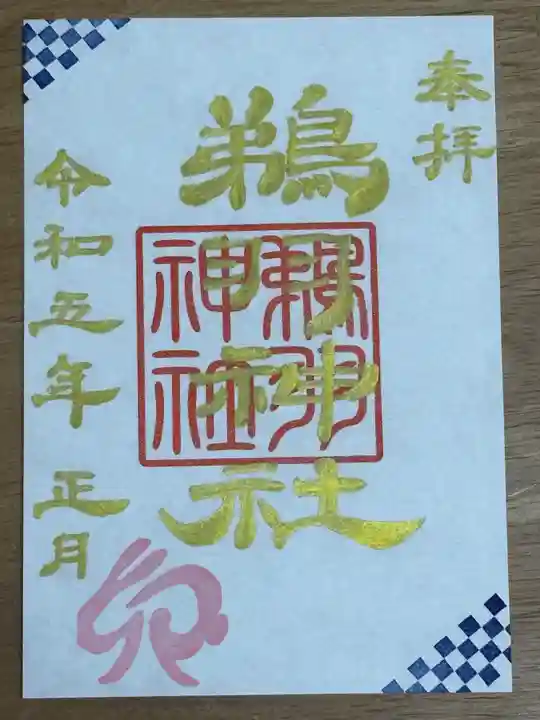 奉拝
鵜羽神社
鵜羽
神社
令和五年 正月
卯